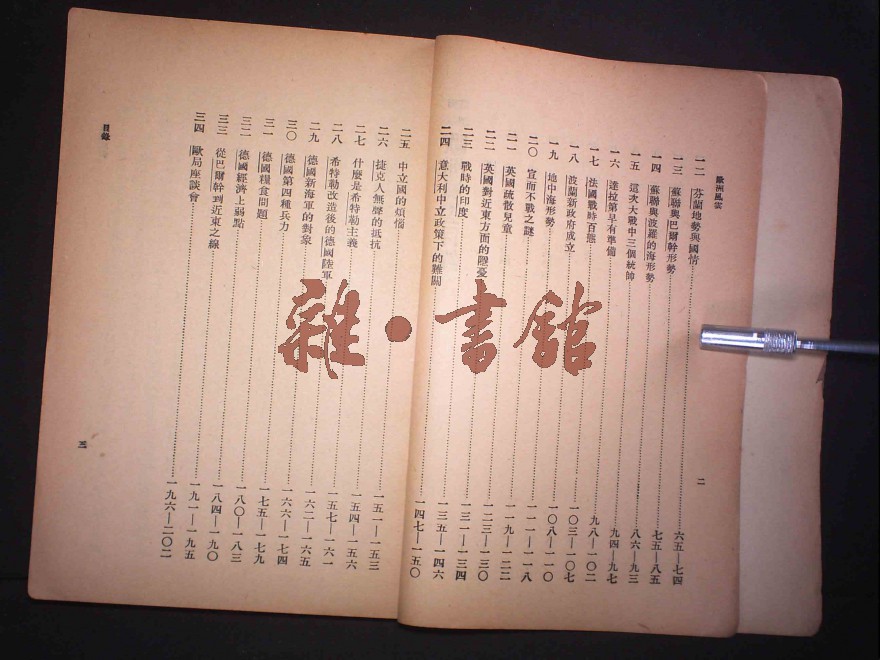 歐洲風雲
二
一二 芬蘭地勢與國情 六五—七四
一三 蘇聯與巴爾幹形勢 七五—八五
一四 蘇聯與波羅的海形勢 八六—九三
一五 這次大戰中三個統帥 九四—九七
一六 達拉第早有準備 九八—一〇二
一七 法國戰時百態 一〇三—一〇七
一八 波蘭新政府成立 一〇八—一一〇
一九 地中海形勢 一一一—一一八
二〇 宣而不戰之謎 一一九—一二二
二一 英國疏散兒童 一二三—一三〇
二二 英國對近東方面的隱憂 一三一—一三四
二三 戰時的印度 一三五—一四六
二四 意大利中立政策下的難關 一四七—一五〇
二五 中立國的煩惱 一五一—一五三
二六 捷克人無聲的抵抗 一五四—一五六
二七 什麼是希特勒主義 一五七—一六一
二八 希特勒改造後的德國陸軍 一六二—一六五
二九 德國新海軍的對象 一六六—一七四
三〇 德國第四種兵力 一七五—一七九
三一 德國糧食問題 一八〇—一八三
三二 德國經濟上弱點 一八四—一九〇
三三 從巴爾幹到近東之線 一九一—一九五
三四 歐局座談會 一九六—二〇二
目錄
三
雜·書館